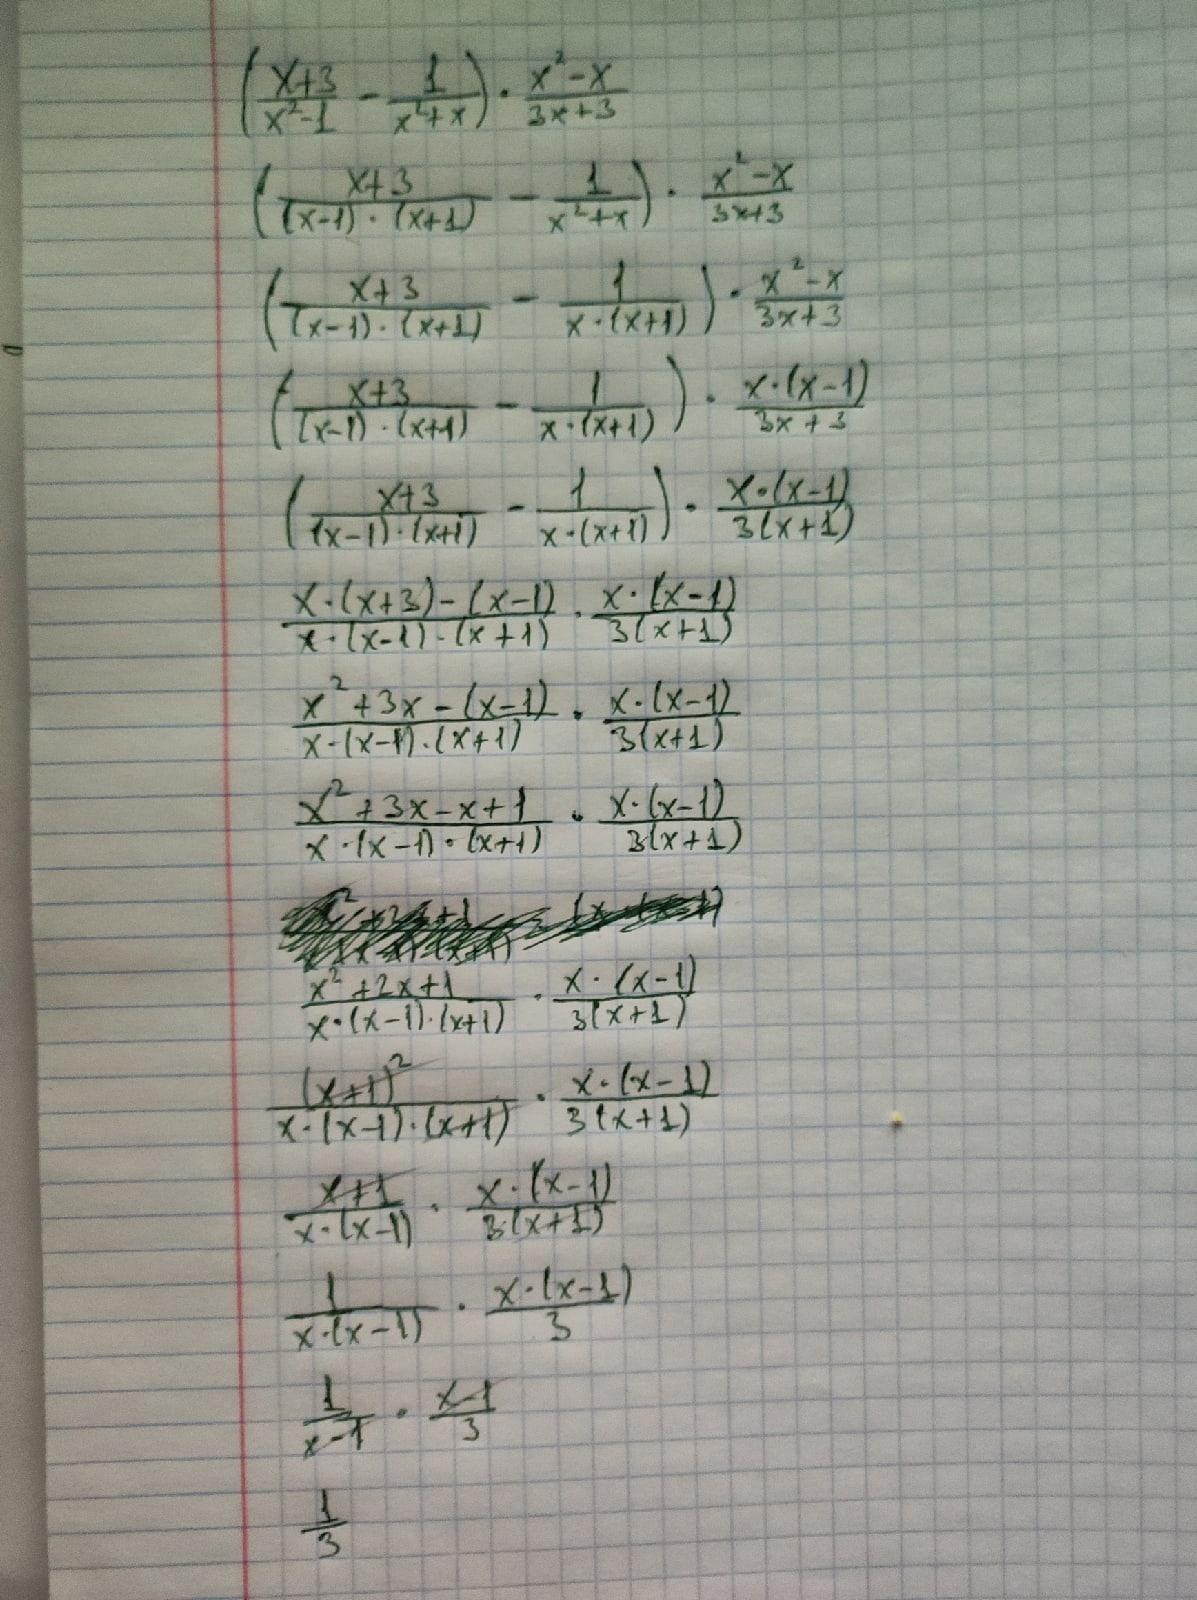 (x+3/x²-1 - 1/x²+x) · x²-x/3x+3
(x+3/(x-1)·(x+1) - 1/x²+x) · x²-x/3x+3
(x+3/(x-1)·(x+1) - 1/x·(x+1)) · x²-x/3x+3
(x+3/(x-1)·(x+1) - 1/x·(x+1)) · x·(x-1)/3x+3
(x+3/(x-1)·(x+1) - 1/x·(x+1)) · x·(x-1)/3(x+1)
x·(x+3)-(x-1)/x·(x-1)·(x+1) · x·(x-1)/3(x+1)
x²+3x-(x-1)/x·(x-1)·(x+1) · x·(x-1)/3(x+1)
x²+3x-x+1/x·(x-1)·(x+1) · x·(x-1)/3(x+1)
x²+2x+1/x·(x-1)·(x+1) · x·(x-1)/3(x+1)
(x+1)²/x·(x-1)·(x+1) · x·(x-1)/3(x+1)
x+1/x·(x-1) · x·(x-1)/3(x+1)
1/x·(x-1) · x·(x-1)/3
1/x-1 · x-1/3
1/3